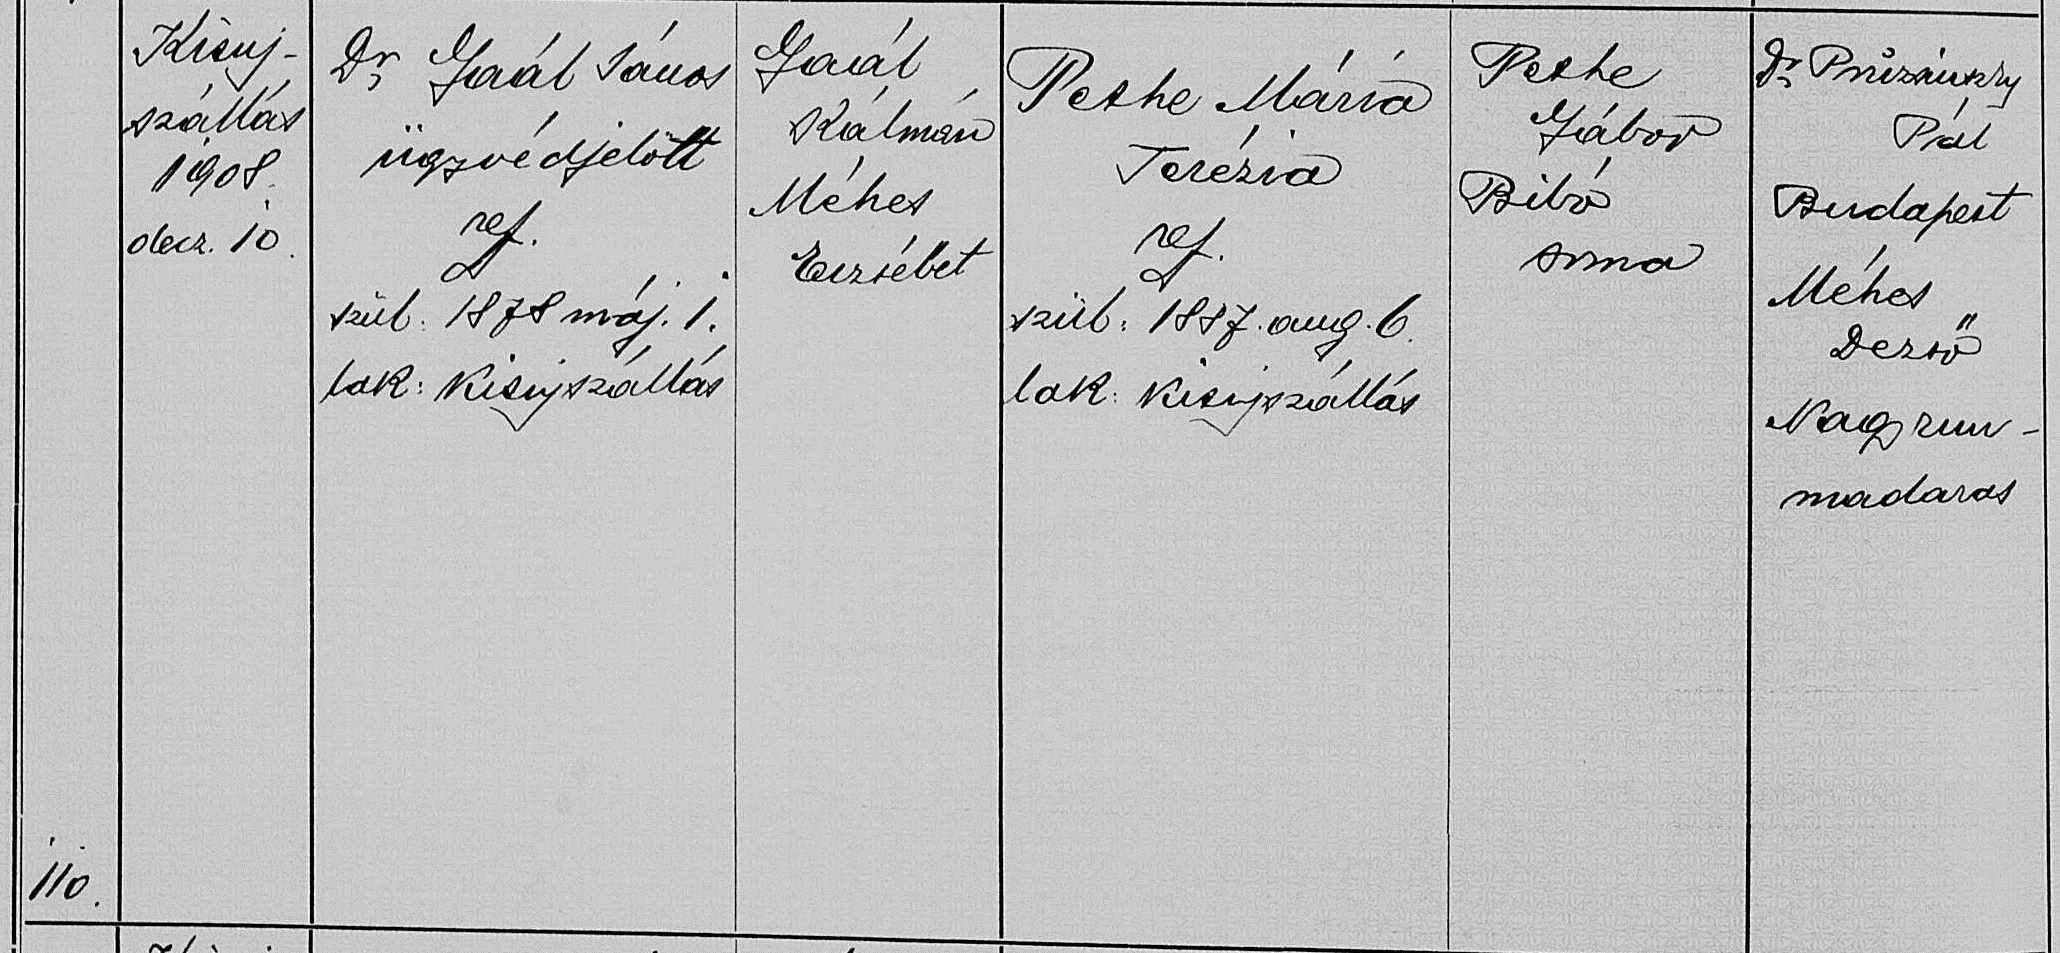 Kisuj-
szállás
1908.
decz. 10.
Dr Gaál János
ügyvédjelölt
ref.
szül: 1878 máj. 1.
lak: Kisujszállás
Gaál
Kálmán
Méhes
Erzsébet
Pethe Mária
Terézia
ref.
szül: 1887. aug. 6.
lak: Kisujszállás
Pethe
Gábor
Bibó
Anna
Dr
Pál
Budapest
Méhes
Dezső
Nagykun-
madaras
110.